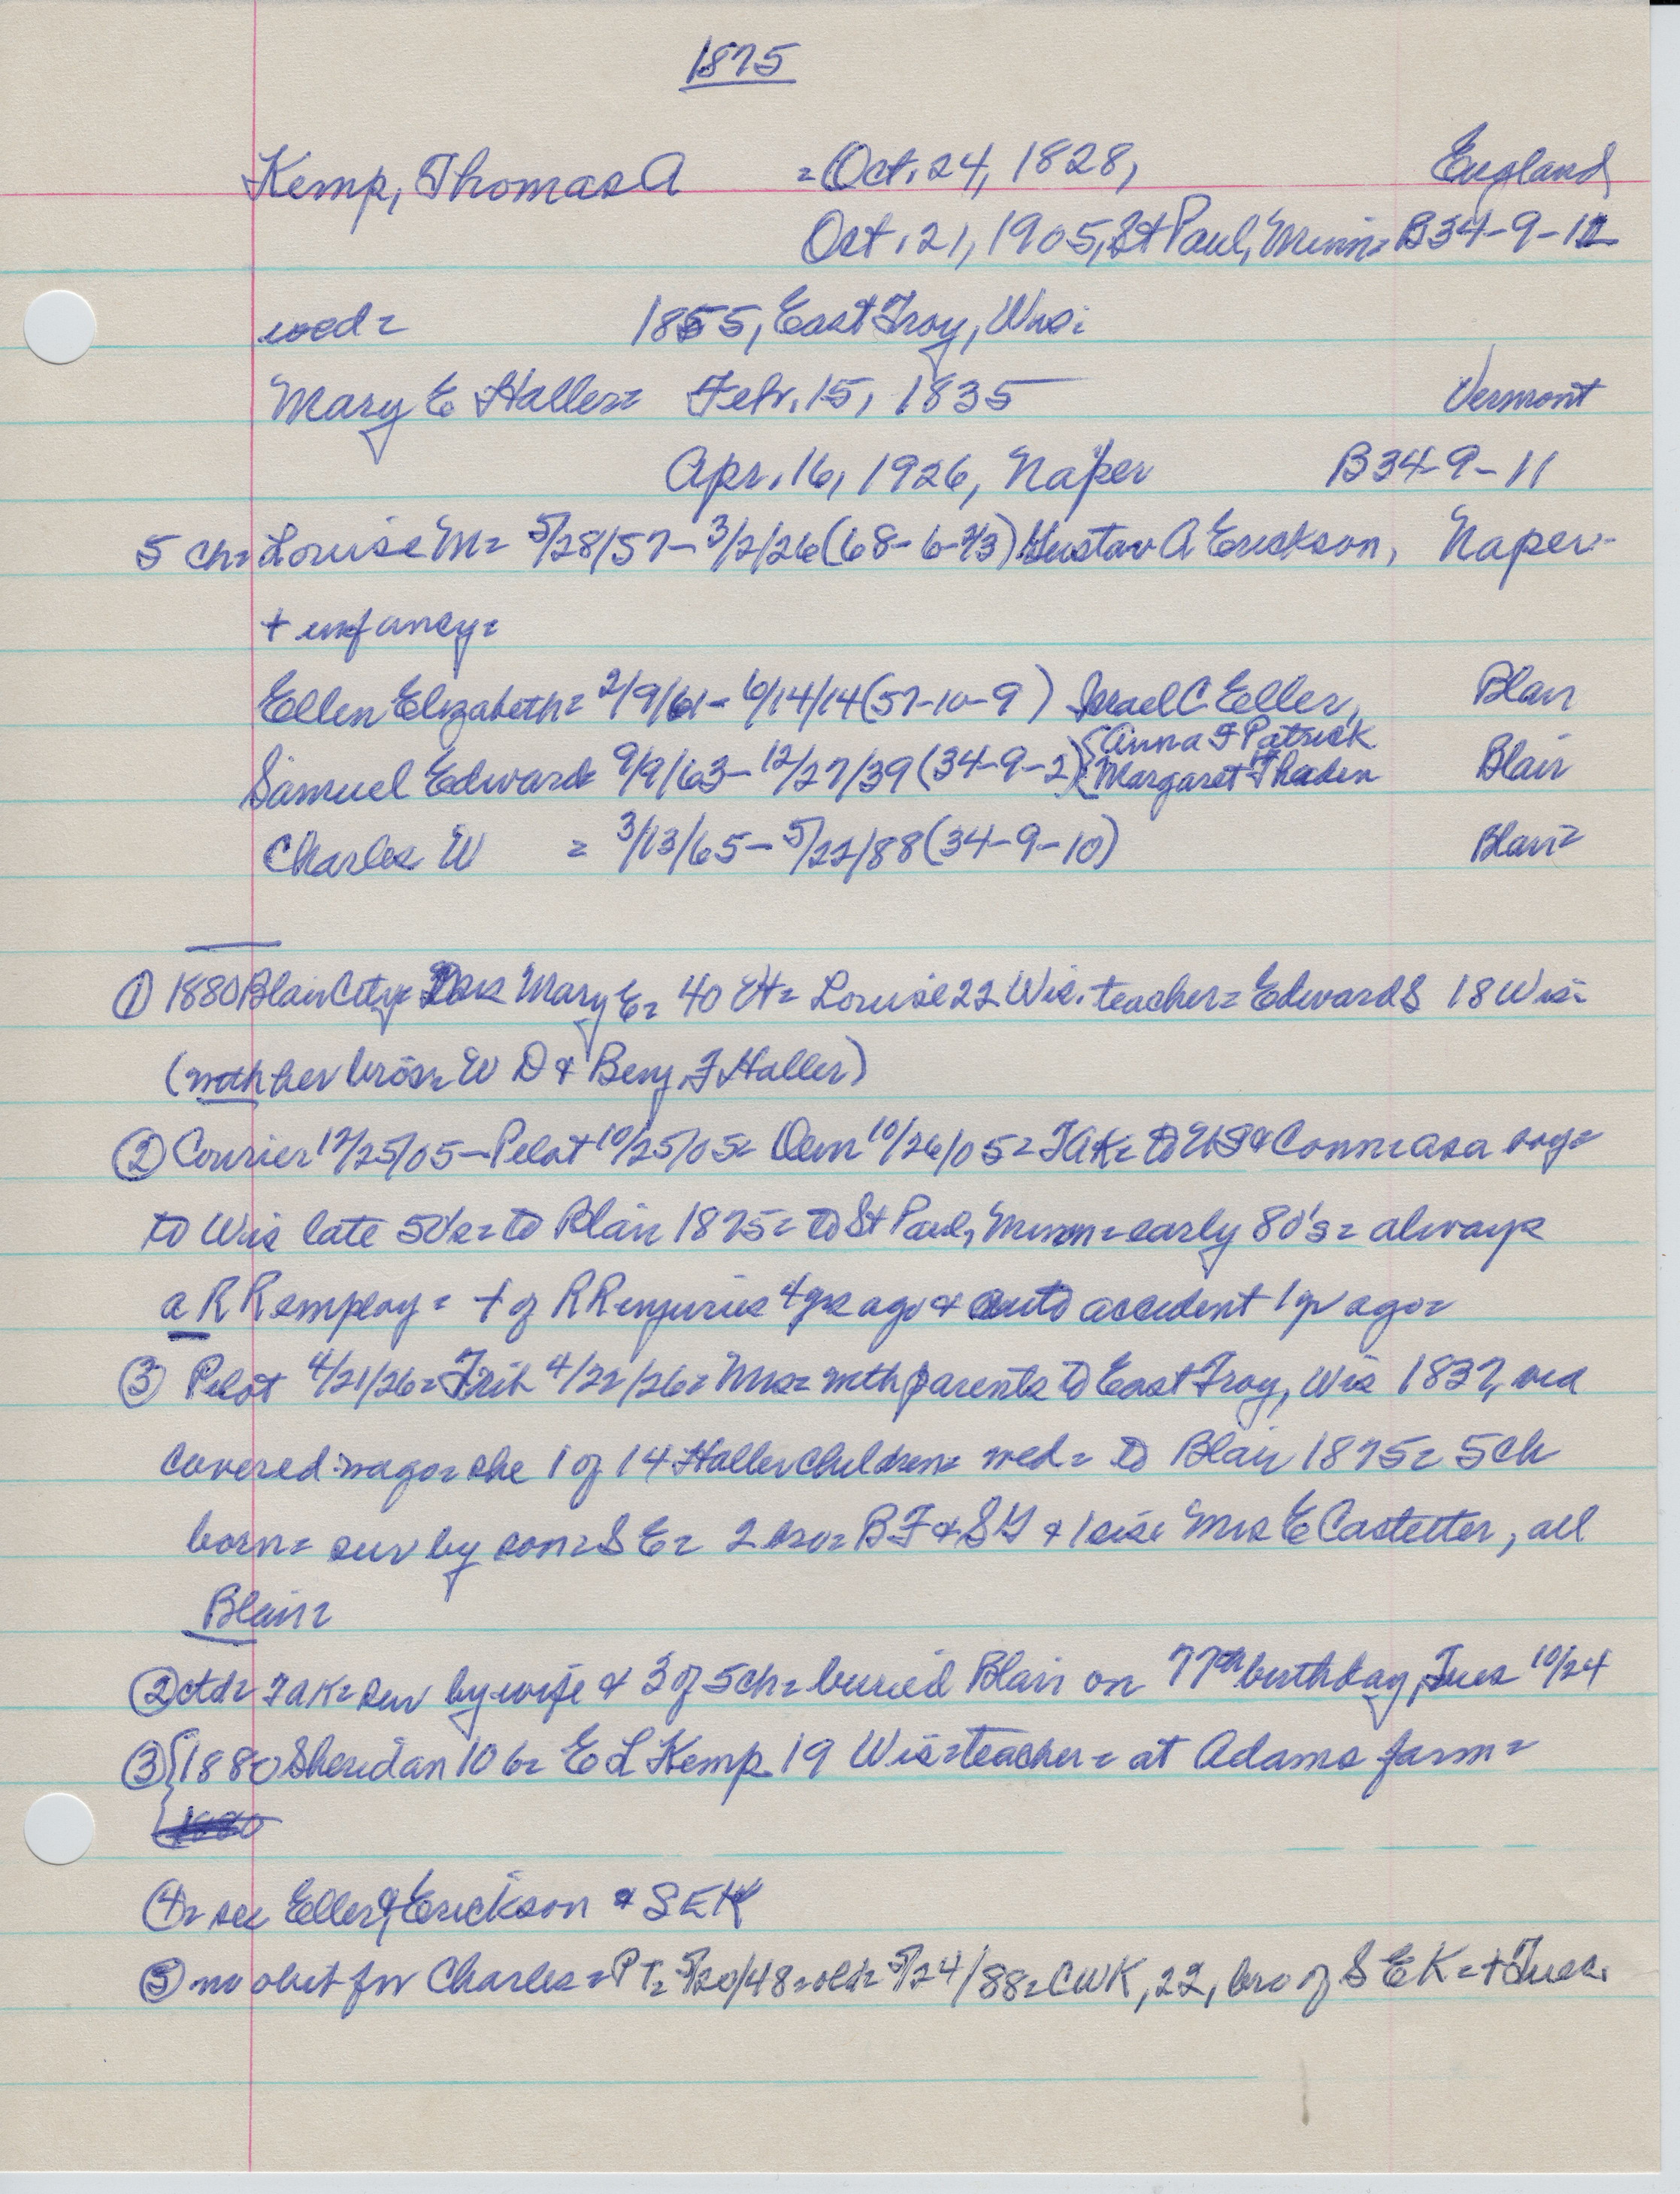 1875
Kemp, Thomas A = Oct. 24, 1828, England
Oct. 21, 1905, St Paul, Minn= B34-9-12
wed= 1855, East Troy, Wis=
Mary E Haller= Febr. 15, 1835 Vermont
Apr. 16, 1926, Naper B34-9-11
5 ch= Louise M= 5/28/57-3/2/26 (68-6-2/3) Gustav A Erickson, Naper-
+ infancy=
Ellen Elizabeth= 2/9/61- 6/14/14 (57-10-9) Israel C Eller, Blair
{Anna F Patrick
Samuel Edward= 9/9/63-12/27/39 (34-9-2) {Margaret Thaden Blair
Charles W = 3/13/65-5/22/88 (34-9-10) Blair=
① 1880 Blair City= Mary E= 40 = Louise 22 Wis. teacher= Edward S 18 Wis=
(with her bros= W D & Benj. F Haller)
② Courier 12/25/05-Pilot 10/25/05= Dem 10/26/05= TAK= to US & Conn= as a boy=
to Wis late 50's= to Blair 1875= to St Paul, Minn= early 80's= always
a RR employ= + of RR injuries 4 yrs ago & auto accident 1 yr ago=
③ Pilot 4/21/26= Trib 4/22/26= Mrs= with parents to East Troy, Wis 1837, via
covered wago= she 1 of 14 Haller children= wed= to Blair 1875= 5 ch
born= surv by son= S E= 2 bro= BF & SY & 1 sis= Mrs E Castetter, all
Blair=
② ctd= TAK= surv by wife & 3 of 5 ch= buried Blair on 77th birthday, Tues 10/24
③ {1880 Sheridan 10 6= E L Kemp 19 Wis= teacher= at Adams farm=
④= see Eller & Erickson & SEK
⑤ no obit for Charles= PT= 5/20/48= old= 5/24/88= CWK, 22, bro of S E K= + Tues.